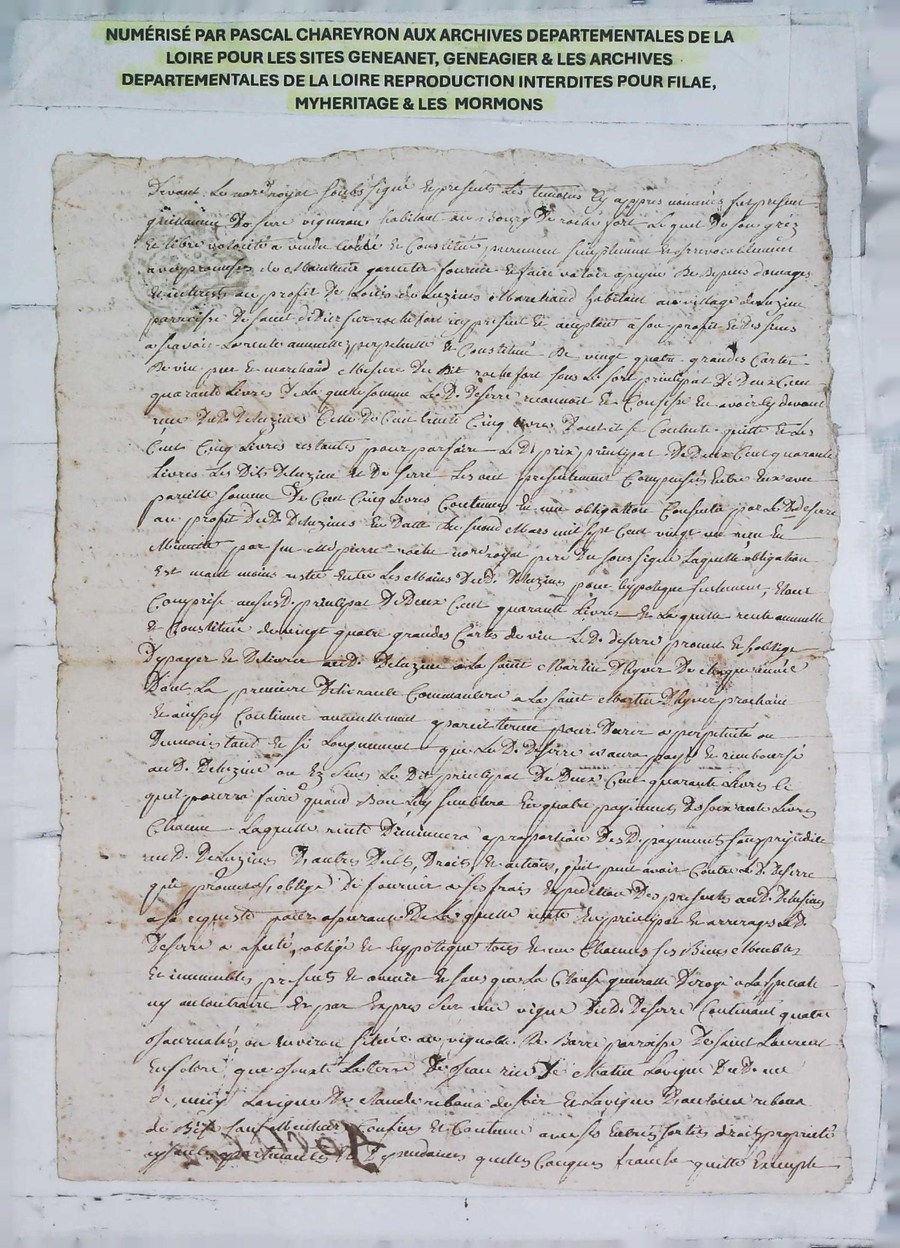 NUMÉRISÉ PAR PASCAL CHAREYRON AUX ARCHIVES DEPARTEMENTALES DE LA
LOIRE POUR LES SITES GENEANET, GENEAGIER & LES ARCHIVES
DEPARTEMENTALES DE LA LOIRE REPRODUCTION INTERDITES POUR FILAE,
MYHERITAGE & LES MORMONS
Devant Le royal soubs signé Et presents Les temoins Ey appres nommés fut present
guillaume De serre vigneron habitant au Bourg De rochefort Lequel De son gréz
Et libre volonté a vendu Et Constitué purement simplement Et irrevocablement
avec promesses de Maintenir garentir fournir Et faire valoir a peyne De Depens domages
Et interests au profit De Marchand habitant au village
parroisse De saint didier sur rochefort icy present Et aceptant a son profit Et Des siens
a scavoir La rente annuelle perpetuelle Et Constituée De vingt quatre grandes Cartes
De vin pur Et marchand Mesure Du Dit rochefort sous Le sort principal De Deux Cent
quarante Livres De La quelle somme Le D. Deserre reconnoit Et Confesse En avoir Cy devant
Celle De Cent trente Cinq livres Dont il se Contente quitte Et Les
Cent Cinq Livres restantes pour parfaire Le D. prix principal De Deux Cent quarante
Livres Les Dits Deluzine Et De serre Les ont presentement Compensés Entre Eux avec
pareille somme De Cent Cinq Livres Contenue En une obligation par Le D. Deserre
au profit Du D. En Datte Du Mars mil sept Cent vingt
par pierre roche royal pere Du soussigné Laquelle obligation
Est neant moins restée Entre Les Mains Du D. pour hypoteque seulement, Etant
Comprise principal De Deux Cent quarante Livres Et La quelle rente annuelle
Et Constituée de vingt quatre grandes Cartes de vin Le D. deserre promet Et soblige
De payer Et Delivrer au D. Deluzine a La saint Martin D'hyver De Chaque année
Dont La premiere Delivrance Commancera a La saint Martin D'hyver prochain
Et ainsy Continuer annuellement a pareil terme pour Durer a perpetuité ou
Du moins tand Et si Longuement que Le D. Deserre n'aura payé Et remboursé
au D. Deluzine ou Ez siens Le Dit principal De Deux Cent quarante Livres Ce
qu'il pourra faire quand Bon Luy semblera En quatre payements De soixante Livres
Chacun Laquelle rente Diminuera a proportion Des D. payements sans prejudice
au D. D'autres Dubs, Droits, Et actions, qu'il peut avoir Contre Le D. Deserre
qui promet, oblige De fournir a ses frais Expedition Des presentes au D.
a sa requeste pour asurance De La quelle rente principal Et arrerages Le D.
Deserre a afecté, obligé Et hypotequé tous Et un Chacuns ses Biens Meubles
Et immeubles, presents Et avenir Et sans que La Clause generalle Deroge a La specialle
ny au Contraire Et par Expres sur une vigne Du D. Deserre Contenant quatre
ou Environ située au vignoble De Barre parroisse De saint Laurent
que jouxte La terre De jean Matin La vigne Du D.
La vigne De Claude reboux de soir Et La vigne D'antoine reboux
De Bize sauf Meilleurs Confins Et Contenue avec ses Entrées sorties droits proprietés
apartenances Et Dependances quelles Conques franche quitte Exempte